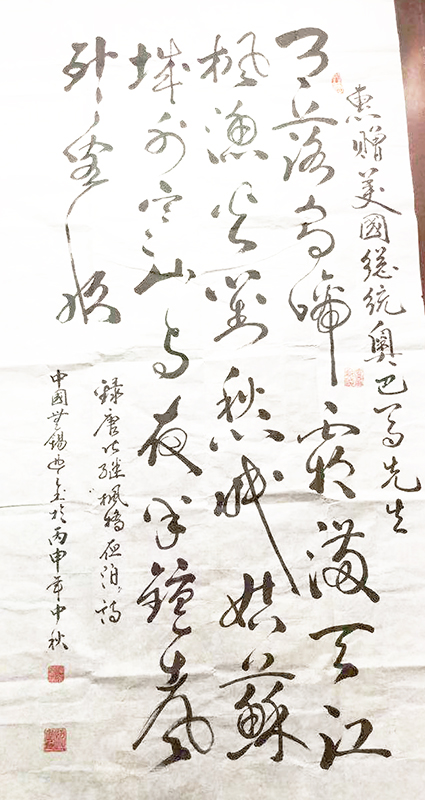 惠贈美國總統奧巴馬先生
月落烏啼霜滿天江
楓漁火對愁眠姑蘇
城外寒山寺夜半鐘聲
到客船
錄唐張繼楓橋夜泊詩
中國無錫於丙申年中秋